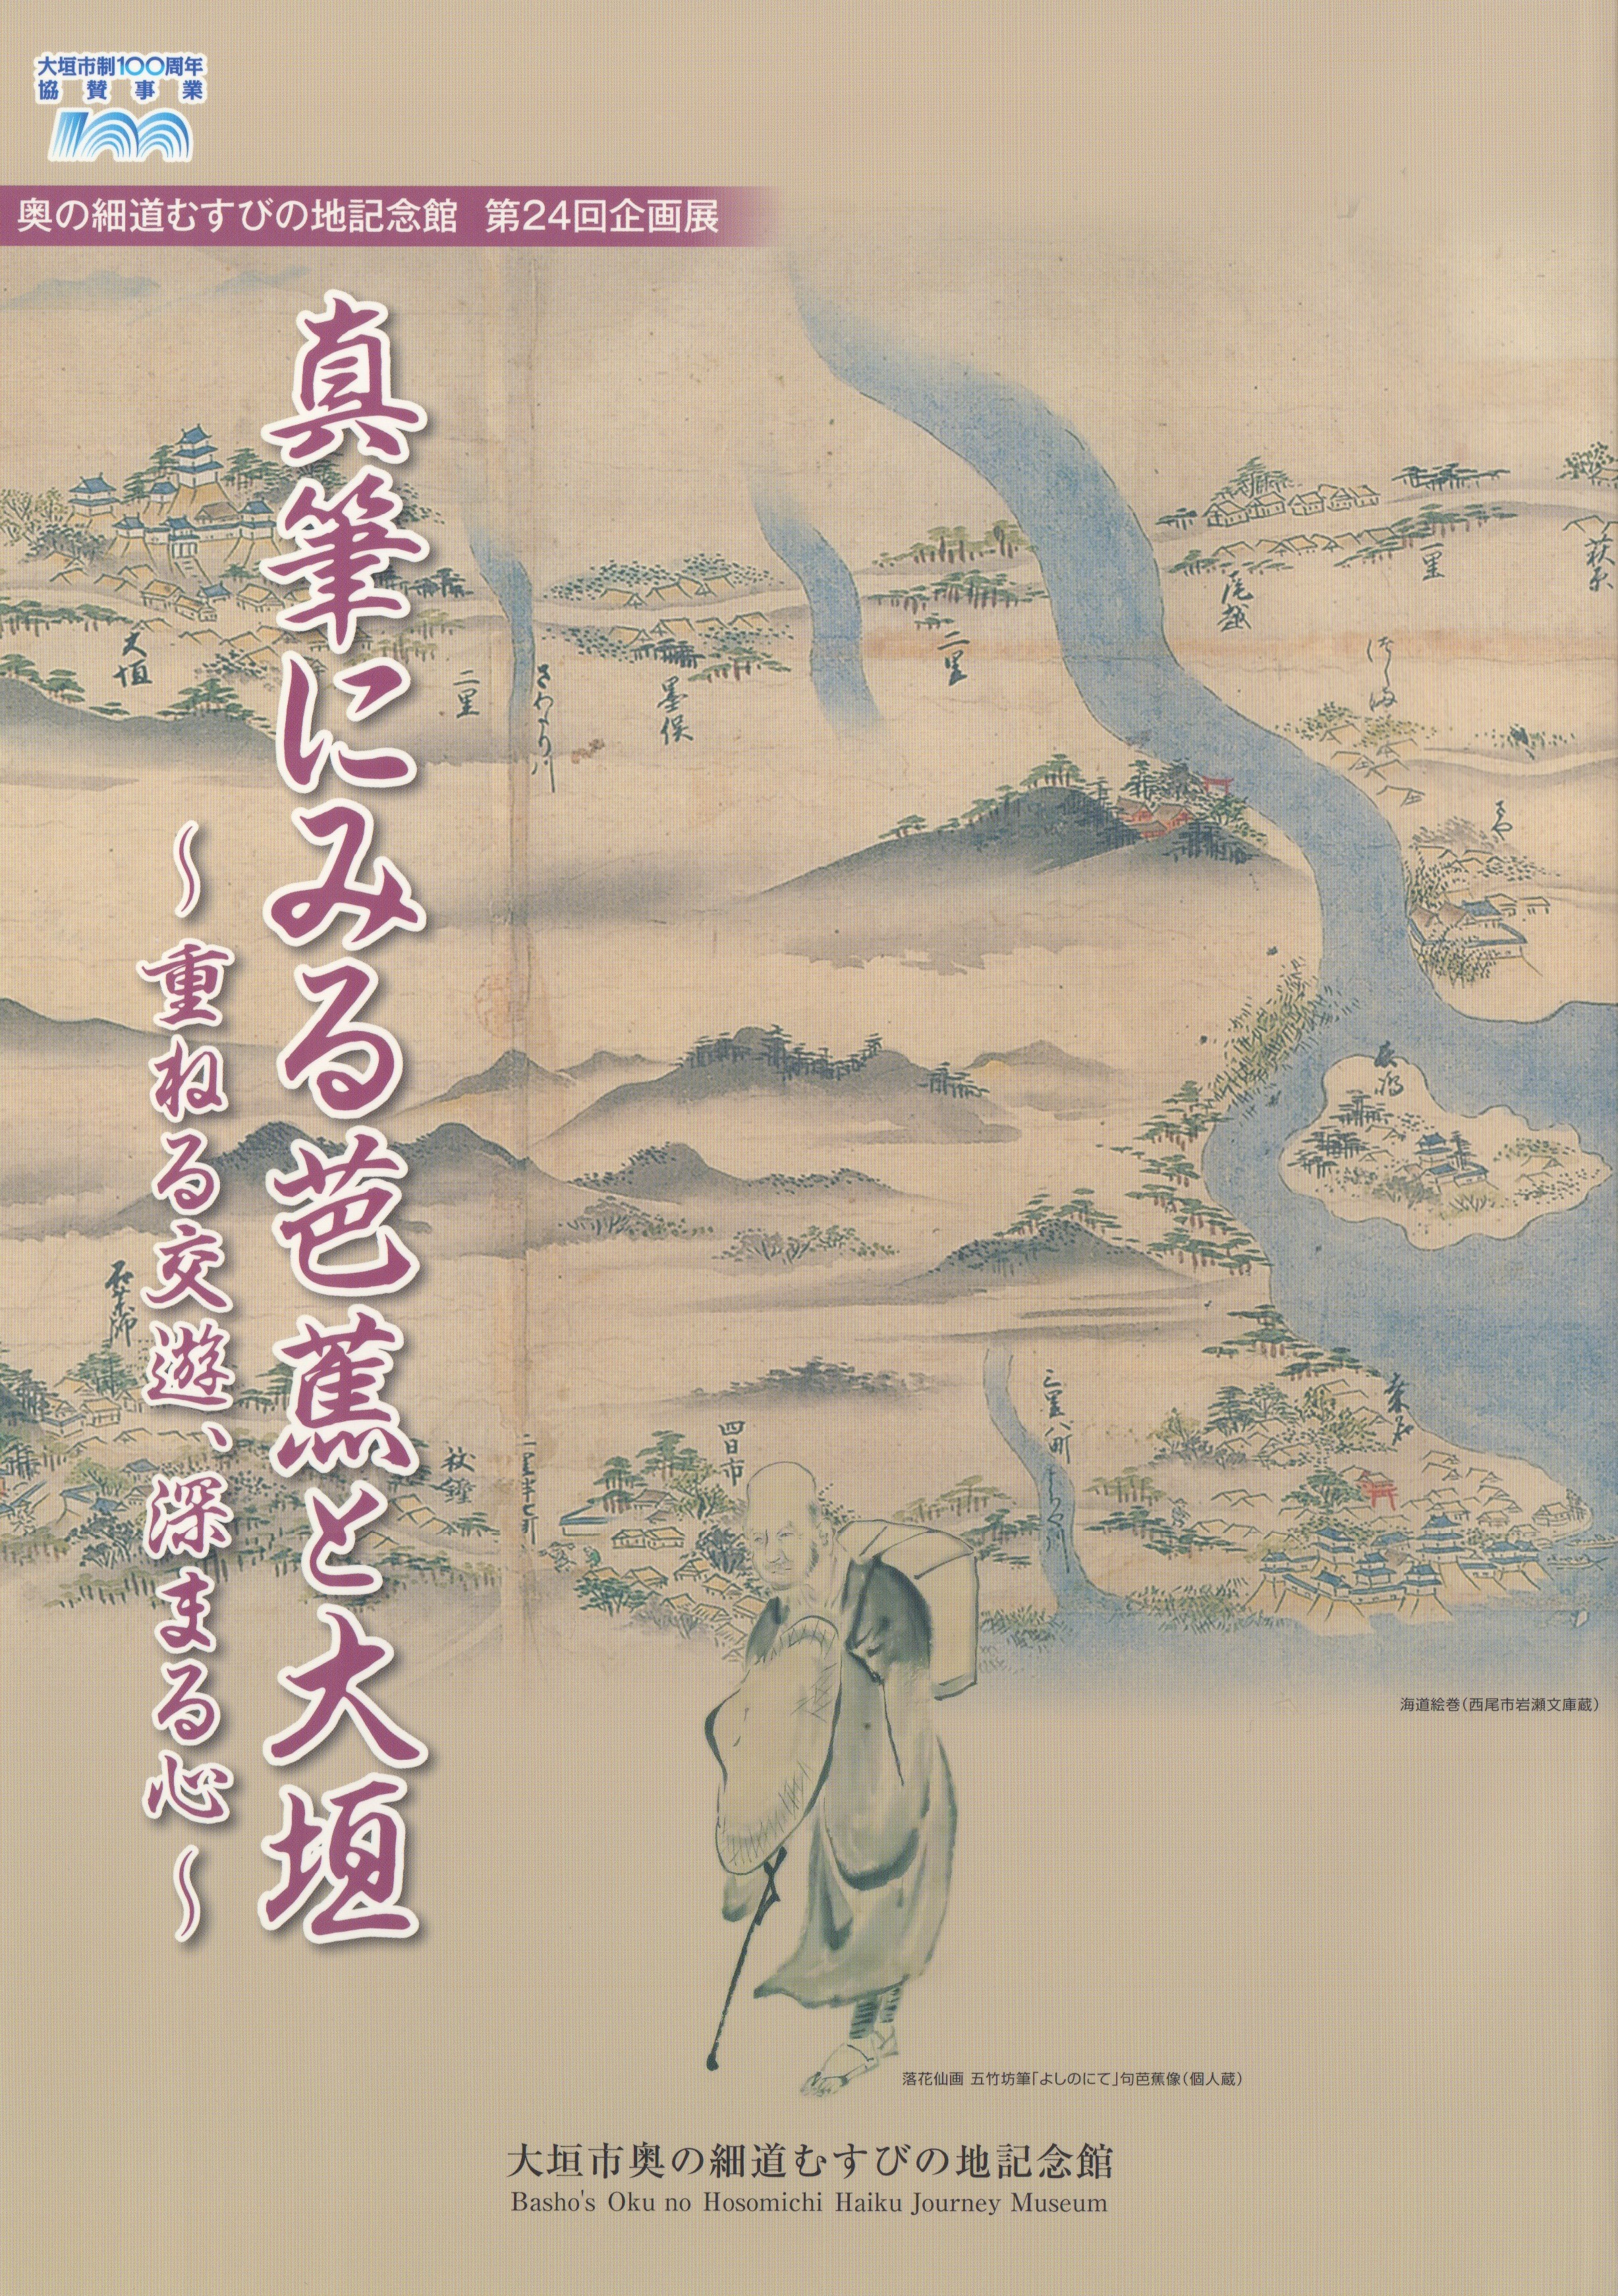 大垣市制100周年
協賛事業
100
奥の細道むすびの地記念館 第24回企画展
真筆にみる芭蕉と大垣
～重ねる交遊、深まる心～
大垣
二里
さわたり川
墨俣
二里
尾越
一里
萩原
つしま
さや
長嶋
石薬師
杖鐘
二里半七町
四日市
三里八町
桑名
海道絵巻(西尾市岩瀬文庫蔵)
落花仙画 五竹坊筆「よしのにて」句芭蕉像(個人蔵)
大垣市奥の細道むすびの地記念館
Basho's Oku no Hosomichi Haiku Journey Museum